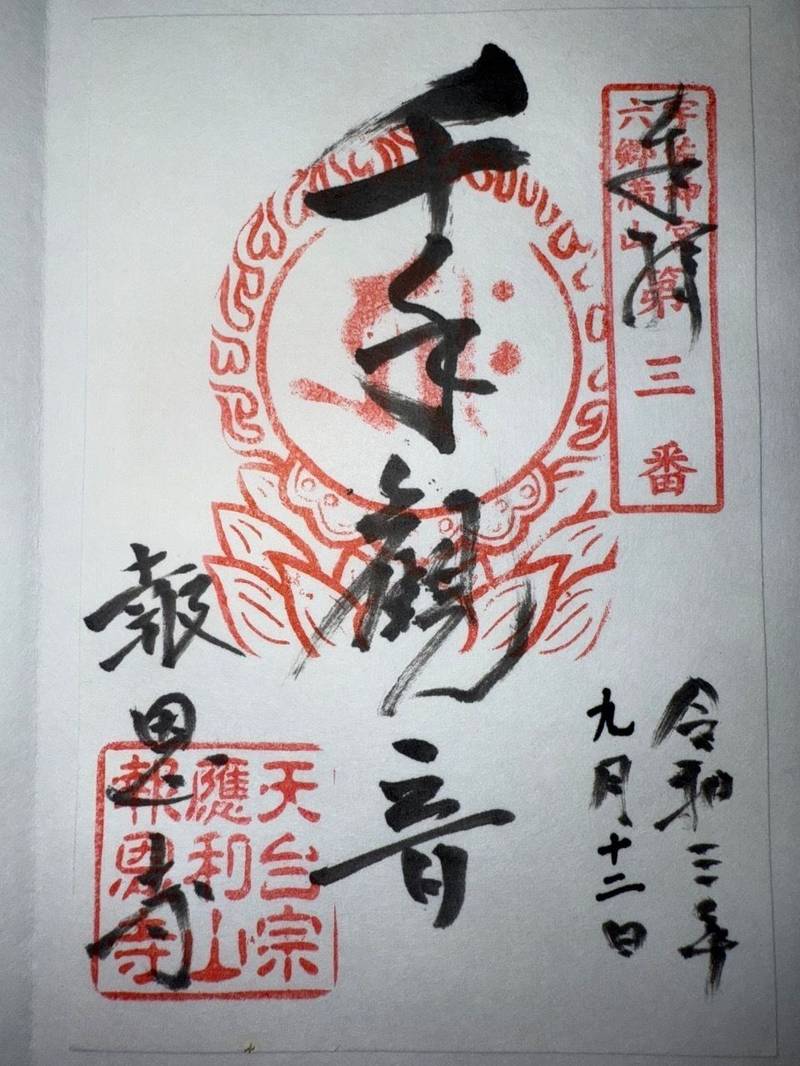 奉拝
宇佐神宮
六郷満山
第三番
令和三年
九月十二日
千手観音
報恩寺
天台宗
應利山
報恩寺